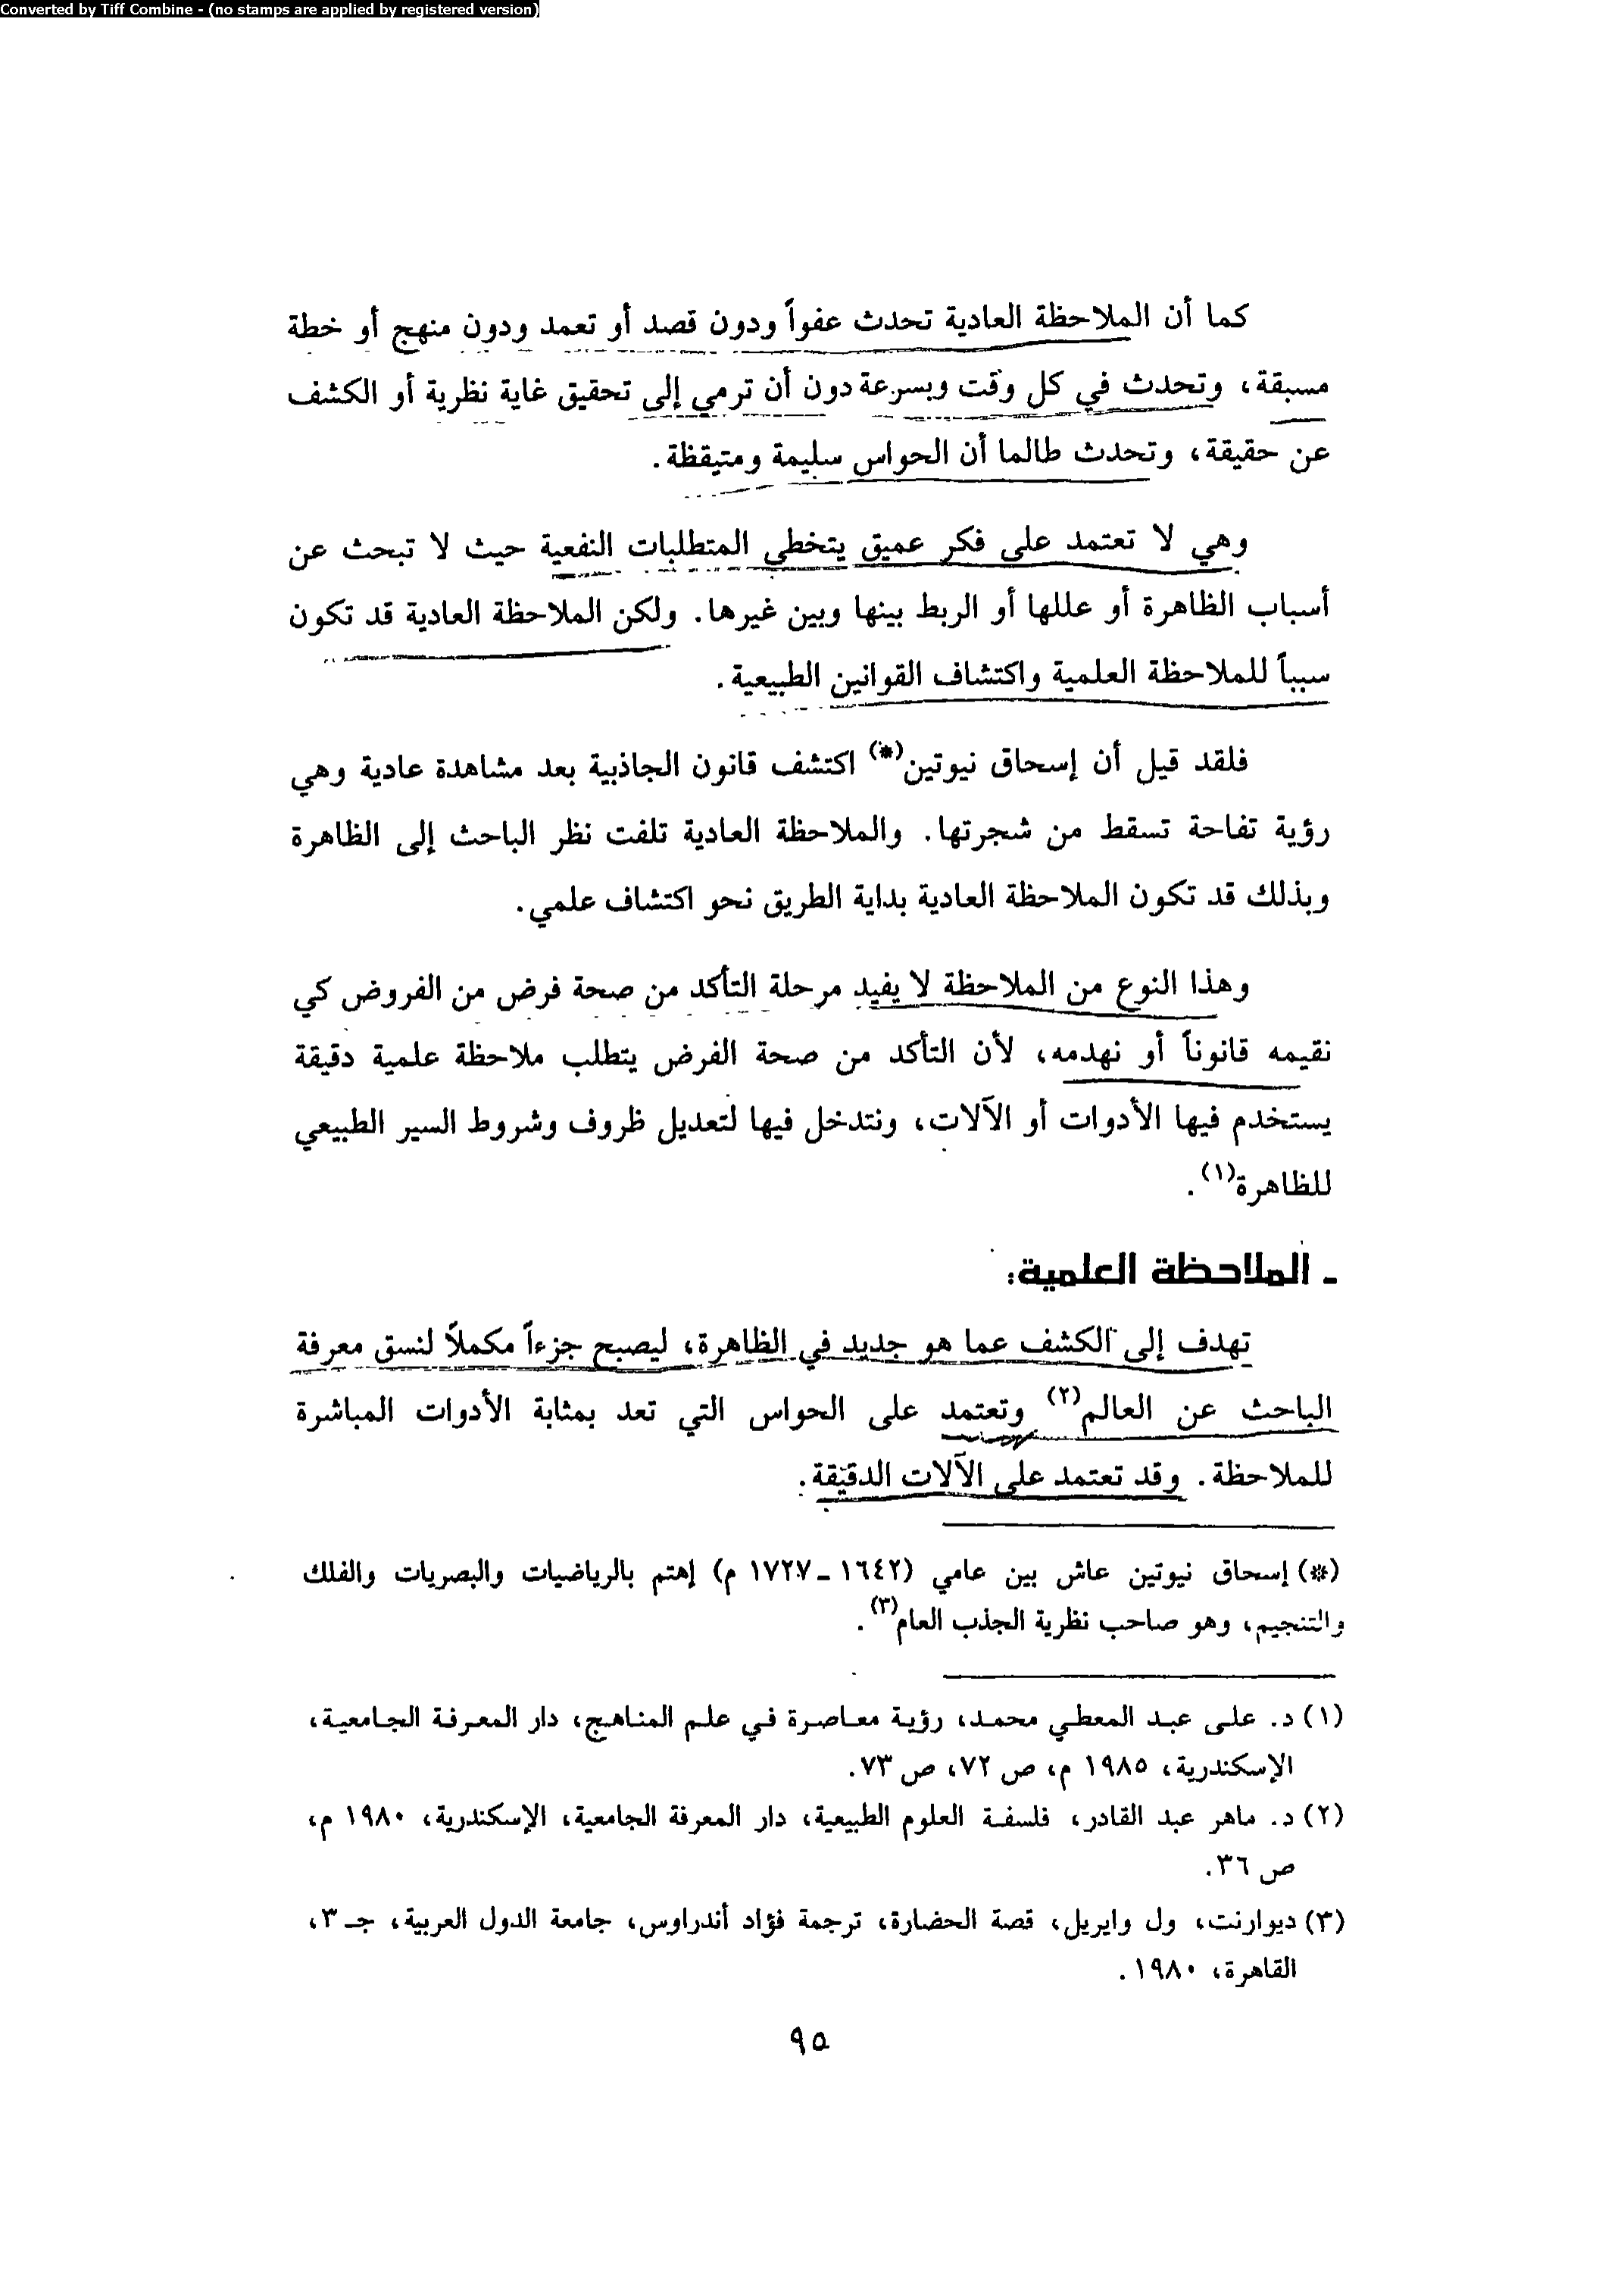 Converted by Tiff Combine - (no stamps are applied by registered version)
كما أن الملاحظة العادية تحدث عفواً ودون قصد أو تعمد ودون منهج أو خطة
مسبقة، وتحدث في كل وقت وبسرعة دون أن ترمي إلى تحقيق غاية نظرية أو الكشف
عن حقيقة، وتحدث طالما أن الحواس سليمة ومتيقظة.
وهي لا تعتمد على فكر عميق يتخطى المتطلبات النفعية حيث لا تبحث عن
أسباب الظاهرة أو عللها أو الربط بينها وبين غيرها. ولكن الملاحظة العادية قد تكون
سبباً للملاحظة العلمية واكتشاف القوانين الطبيعية.
فلقد قيل أن إسحاق نيوتين(*) اكتشف قانون الجاذبية بعد مشاهدة عادية وهي
رؤية تفاحة تسقط من شجرتها. والملاحظة العادية تلفت نظر الباحث إلى الظاهرة
وبذلك قد تكون الملاحظة العادية بداية الطريق نحو اكتشاف علمي.
وهذا النوع من الملاحظة لا يفيد مرحلة التأكد من صحة فرض من الفروض كي
نقيمه قانوناً أو نهدمه، لأن التأكد من صحة الفرض يتطلب ملاحظة علمية دقيقة
يستخدم فيها الأدوات أو الآلات، ونتدخل فيها لتعديل ظروف وشروط السير الطبيعي
للظاهرة(١).
ـ الملاحظة العلمية:
تهدف إلى الكشف عما هو جديد في الظاهرة، ليصبح جزءاً مكملاً لنسق معرفة
الباحث عن العالم(٢) وتعتمد على الحواس التي تعد بمثابة الأدوات المباشرة
للملاحظة. وقد تعتمد على الآلات الدقيقة.
(*) إسحاق نيوتين عاش بين عامي (١٦٤٢ ـ ١٧٢٧ م) إهتم بالرياضيات والبصريات والفلك
والتنجيم، وهو صاحب نظرية الجذب العام(٣).
(١) د. على عبد المعطي محمد، رؤية معاصرة في علم المناهج، دار المعرفة الجامعية،
الإسكندرية، ١٩٨٥ م، ص ٧٢، ص ٧٣.
(٢) د. ماهر عبد القادر، فلسفة العلوم الطبيعية، دار المعرفة الجامعية، الإسكندرية، ١٩٨٠ م،
ص ٣٦.
(٣) ديوارنت، ول وايريل، قصة الحضارة، ترجمة فؤاد أندراوس، جامعة الدول العربية، جـ ٣،
القاهرة، ١٩٨٠.
٩٥